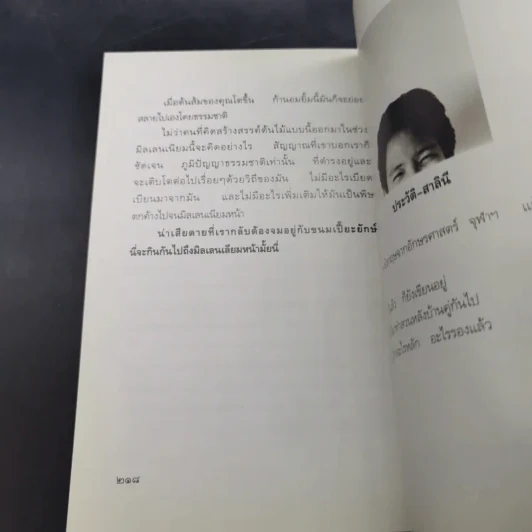 เมื่อต้นส้มของคุณโตขึ้น ก้านอมยิ้มนี้มันก็จะย่อย
สลายไปเองโดยธรรมชาติ
ไม่ว่าคนที่คิดสร้างสรรค์ต้นไม้แบบนี้ออกมาในช่วง
มิลเลนเนียมนี้จะคิดอย่างไร สัญญาณที่เขาบอกเราก็
ชัดเจน ภูมิปัญญาธรรมชาติเท่านั้น ที่ดำรงอยู่และ
จะเติบโตต่อไปเรื่อยๆด้วยวิถีของมัน ไม่มีอะไรเบียด
เบียนมาจากมัน และไม่มีอะไรเพิ่มเติมให้มันเป็นพิษ
ตกค้างไปจนมิลเลนเนียมหน้า
น่าเสียดายที่เรากลับต้องจมอยู่กับขนมเปี๊ยะยักษ์
นี่จะกินกันไปถึงมิลเลนเลียมหน้ามั้ยนี่
๒๑๘
ประวัติ-สาลินี
อักษรศาสตร์ จุฬาฯ
ก็ยังเขียนอยู่
สวนหลังบ้านคู่กันไป
อะไรหลัก อะไรรองแล้ว